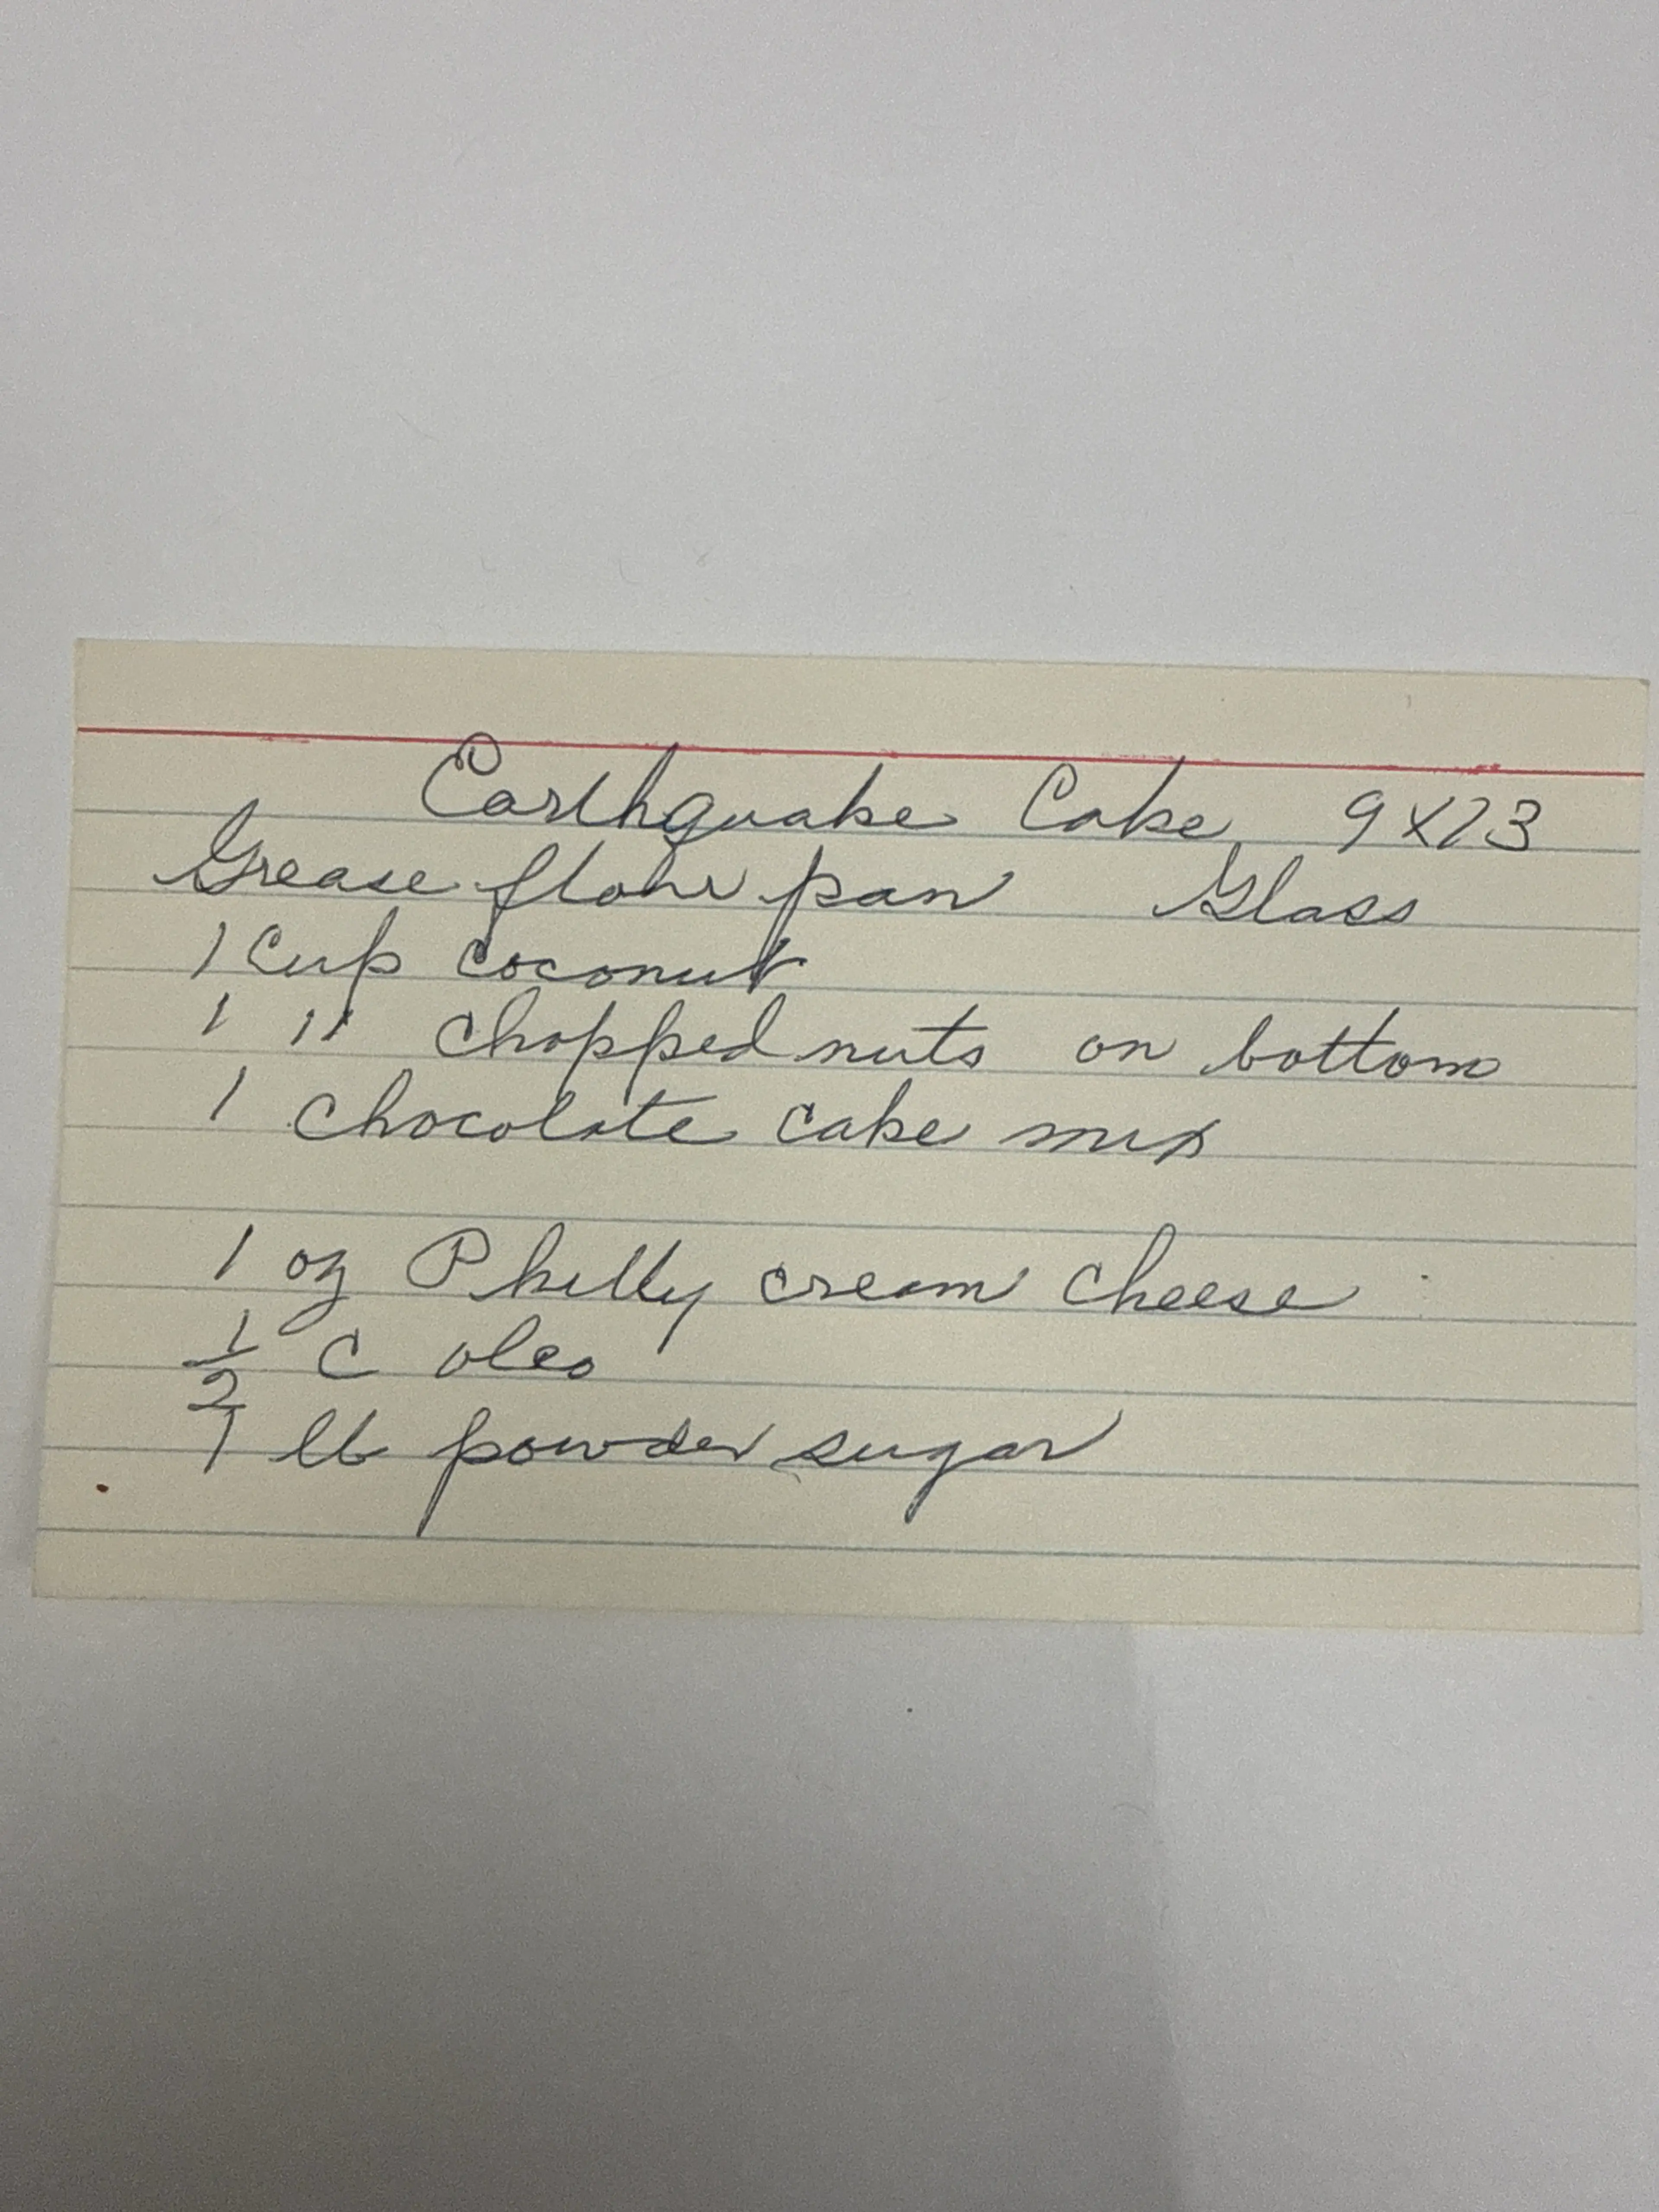 Earthquake Cake 9x13
Grease flour pan Glass
1 Cup coconut
1 " chopped nuts on bottom
1 chocolate cake mix
1 oz Philly cream cheese
1/2 C oleo
1 lb powder sugar